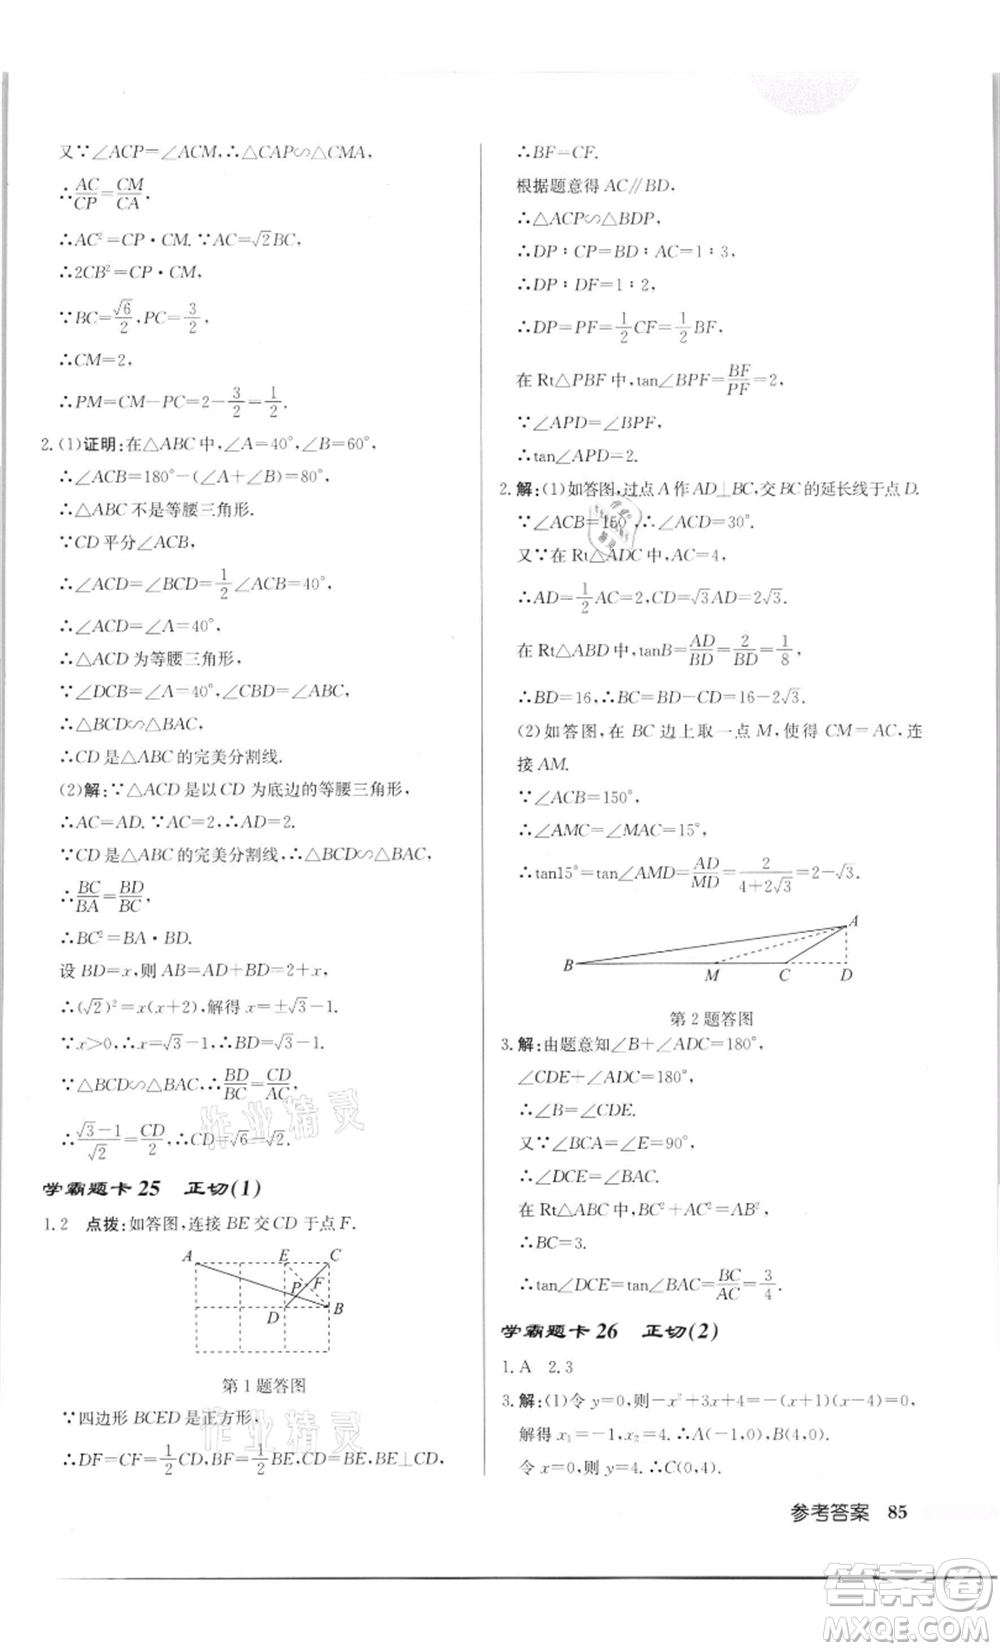 又∵∠ACP=∠ACM,∴△CAP∽△CMA,
∵AC/CP=CM/CA.
∴AC²=CP·CM.∵AC=√2BC,
∴2CB²=CP·CM,
∵BC=√6/2,PC=3/2,
∴CM=2,
∴PM=CM-PC=2-3/2=1/2.
2.(1)证明:在△ABC中,∠A=40°,∠B=60°,
∴∠ACB=180°-(∠A+∠B)=80°,
∴△ABC不是等腰三角形.
∵CD平分∠ACB,
∴∠ACD=∠BCD=1/2∠ACB=40°,
∴∠ACD=∠A=40°,
∴△ACD为等腰三角形,
∵∠DCB=∠A=40°,∠CBD=∠ABC,
∴△BCD∽△BAC,
∴CD是△ABC的完美分割线.
(2)解:∵△ACD是以CD为底边的等腰三角形,
∴AC=AD.∵AC=2,∴AD=2.
∵CD是△ABC的完美分割线,∴△BCD∽△BAC,
∴BC/BA=BD/BC,
∴BC²=BA·BD.
设BD=x,则AB=AD+BD=2+x,
∴(√2)²=x(x+2),解得x=±√3-1.
∵x>0,∴x=√3-1,∴BD=√3-1.
∵△BCD∽△BAC,∴BD/BC=CD/AC,
∴√3-1/√2=CD/2,∴CD=√6-√2.
学霸题卡25 正切(1)
1.2 点拨:如答图,连接BE交CD于点F.
A E C
P F
D B
第1题答图
∵四边形BCED是正方形,
∴DF=CF=1/2CD,BF=1/2BE,CD=BE,BE⊥CD,
∴BF=CF.
根据题意得AC∥BD,
∴△ACP∽△BDP,
∴DP:CP=BD:AC=1:3,
∴DP:DF=1:2,
∴DP=PF=1/2CF=1/2BF,
在Rt△PBF中,tan∠BPF=BF/PF=2,
∵∠APD=∠BPF,
∴tan∠APD=2.
2.解:(1)如答图,过点A作AD⊥BC,交BC的延长线于点D.
∵∠ACB=150°,∴∠ACD=30°.
又∵在Rt△ADC中,AC=4,
∴AD=1/2AC=2,CD=√3AD=2√3.
在Rt△ABD中,tanB=AD/BD=2/BD=1/8,
∴BD=16,∴BC=BD-CD=16-2√3.
(2)如答图,在BC边上取一点M,使得CM=AC,连
接AM.
∵∠ACB=150°,
∴∠AMC=∠MAC=15°,
∴tan15°=tan∠AMD=AD/MD=2/4+2√3=2-√3.
A
B M C D
第2题答图
3.解:由题意知∠B+∠ADC=180°,
∠CDE+∠ADC=180°,
∴∠B=∠CDE.
又∵∠BCA=∠E=90°,
∴∠DCE=∠BAC,
在Rt△ABC中,BC²+AC²=AB²,
∴BC=3.
∴tan∠DCE=tan∠BAC=BC/AC=3/4.
学霸题卡26 正切(2)
1.A 2.3
3.解:(1)令y=0,则-x²+3x+4=0,
解得x₁=-1,x₂=4.∴A(-1,0),B(4,0).
令x=0,则y=4.∴C(0,4).
参考答案 85
作业精灵
作业精灵
答案圈
MXQE.COM